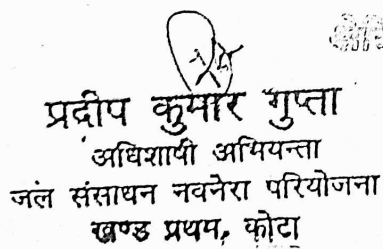 प्रदीप कुमार गुप्ता
अधिशाषी अभियन्ता
जल संसाधन नवनेरा परियोजना
खण्ड प्रथम, कोटा